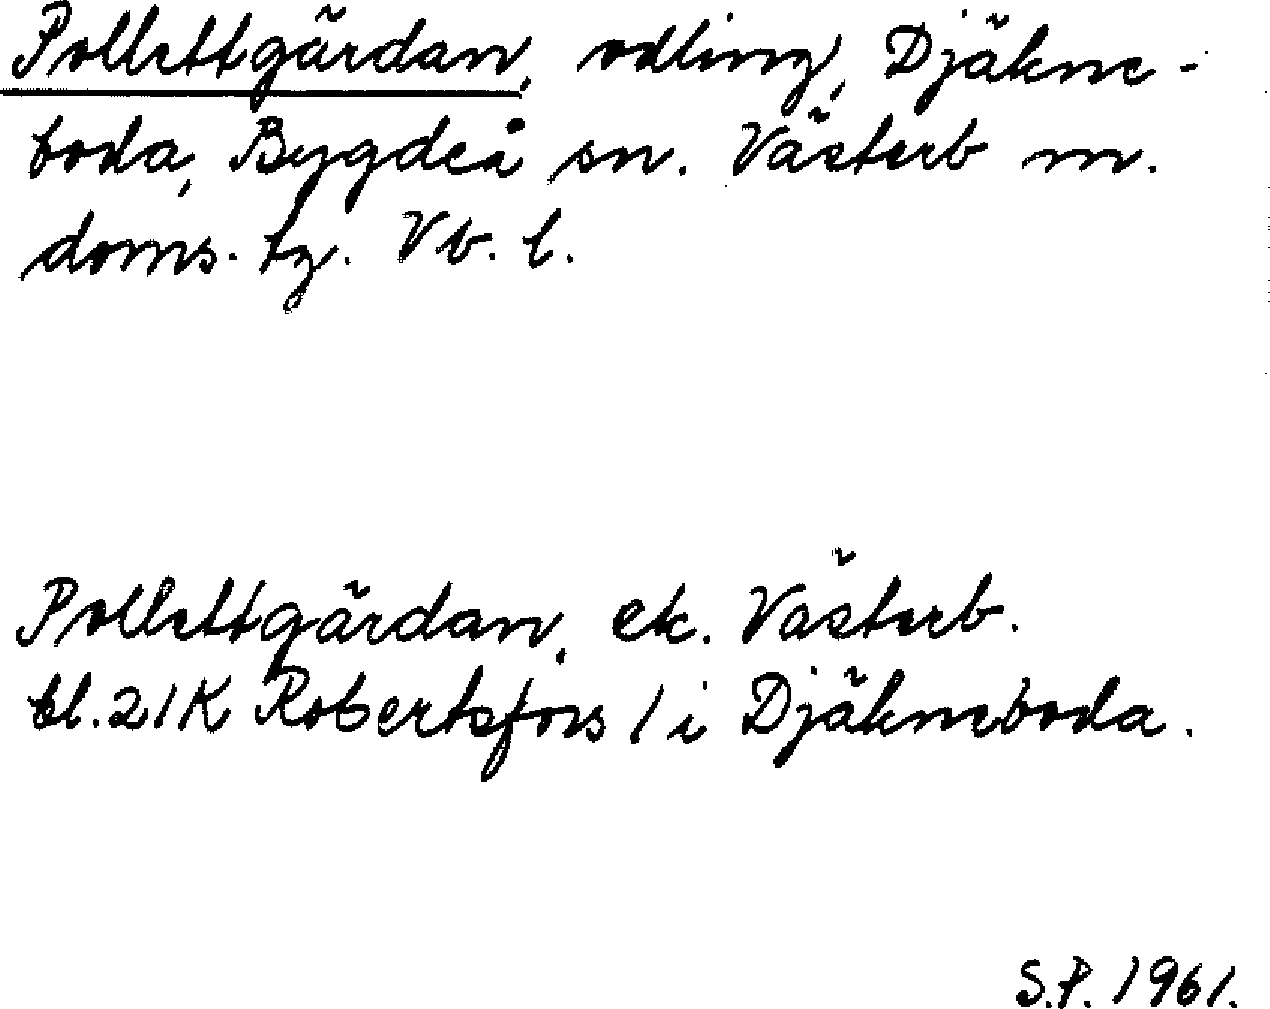 Pollettgärdan, odling, Djäkne-
boda, Bygdeå sn. Västerb m.
doms. tg. Vb. l.
Pollettgärdan, ek. Västerb.
bl. 21K Robertsfors / i Djäkneboda.
S.P. 1961.